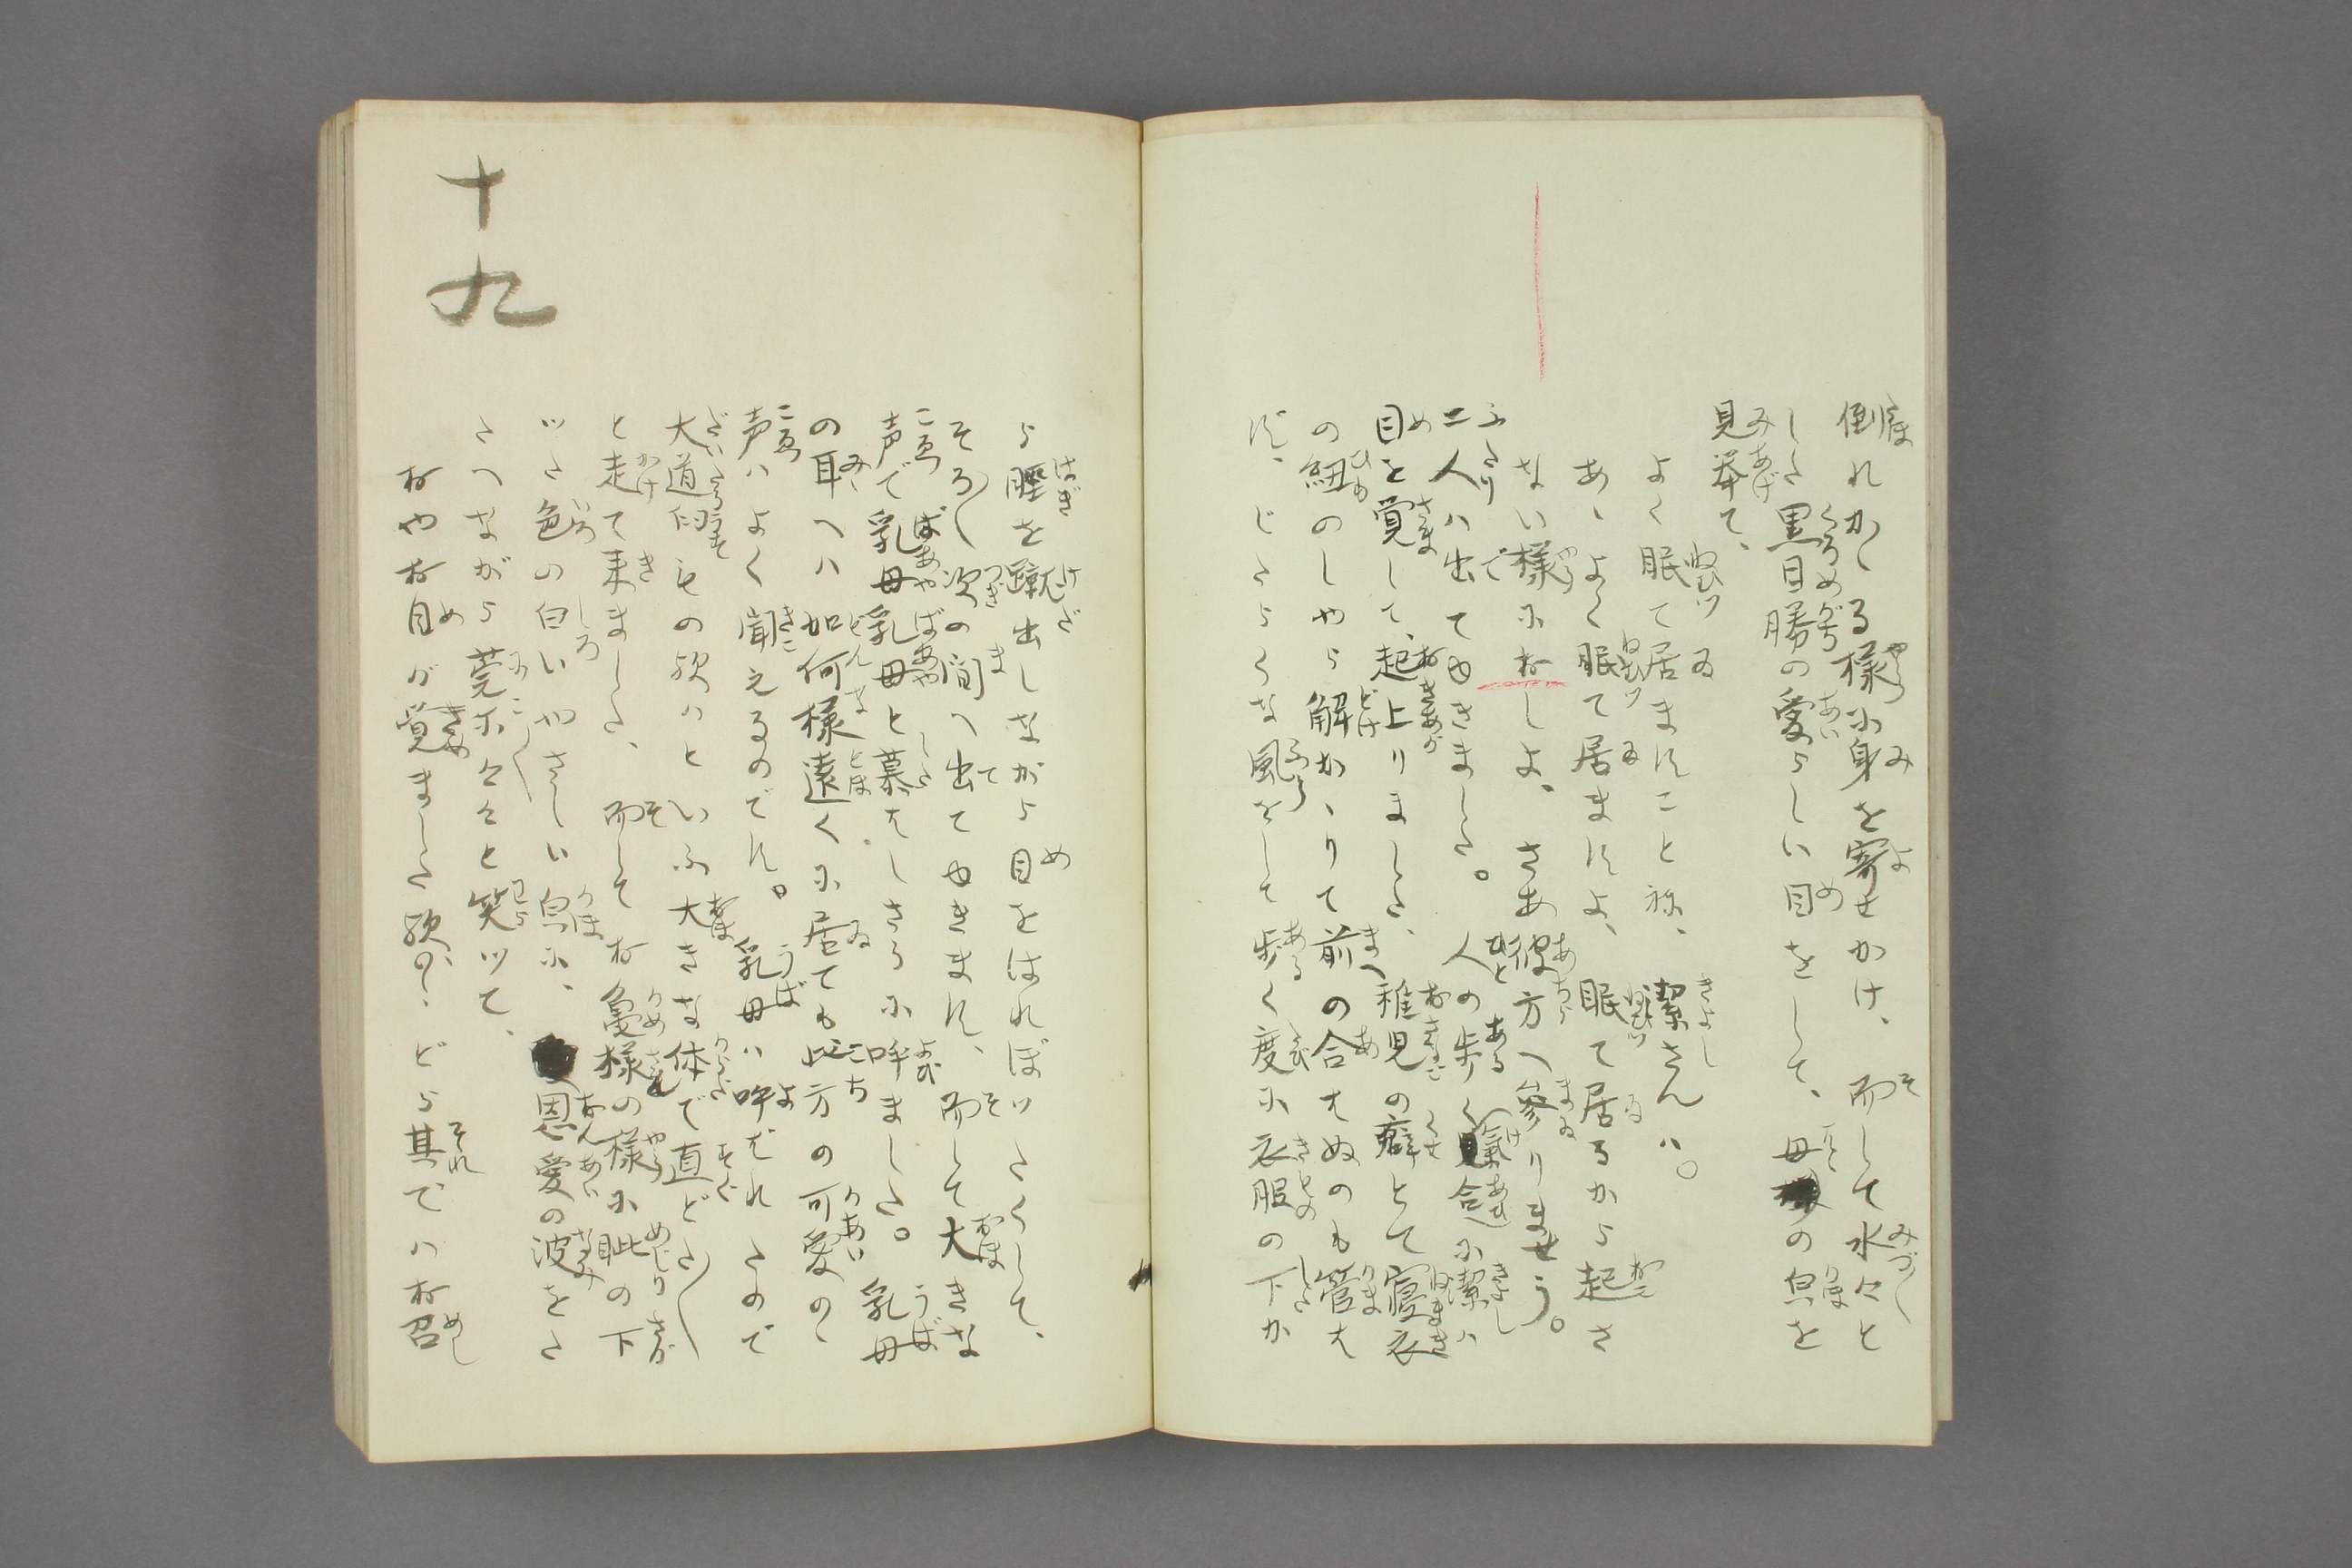 倒れかゝる様に身を寄せかけ、而して水々と
した黒目勝の愛らしい目をして、母の皃を
見挙て、
よく眠て居ますこと祢、潔さんハ。
あゝよく眠て居ますよ、眠て居るから起さ
ない様におしよ、さあ彼方へ參りませう。
二人ハ出てゆきました。人の歩く氣合に潔ハ
目を覚して、起上りました、稚児の癖とて寝衣
の紐のしやら解かゝりて前の合はぬのも管は
ず、じたらくな風をして歩く度に衣服の下か
ら脛を蹴出しながら目をはれぼッたくして、
そろ〳〵次の間へ出てゆきます、而して大きな
声で乳母乳母と慕はしさうに呼ました。乳母
の耳へハ如何様遠くに居ても此方の可愛の
声ハよく聞えるのです。乳母ハ呼ばれたので
大道臼もの歟ハといふ大きな体で直どた〳〵
と走て来ました、而してお亀様の様に眦の下
ッた色の白いやさしい皃に、恩愛の波をた
たへながら莞尓々々と笑ッて、
おやお目が覚ました歟の、どら其でハお召
十九